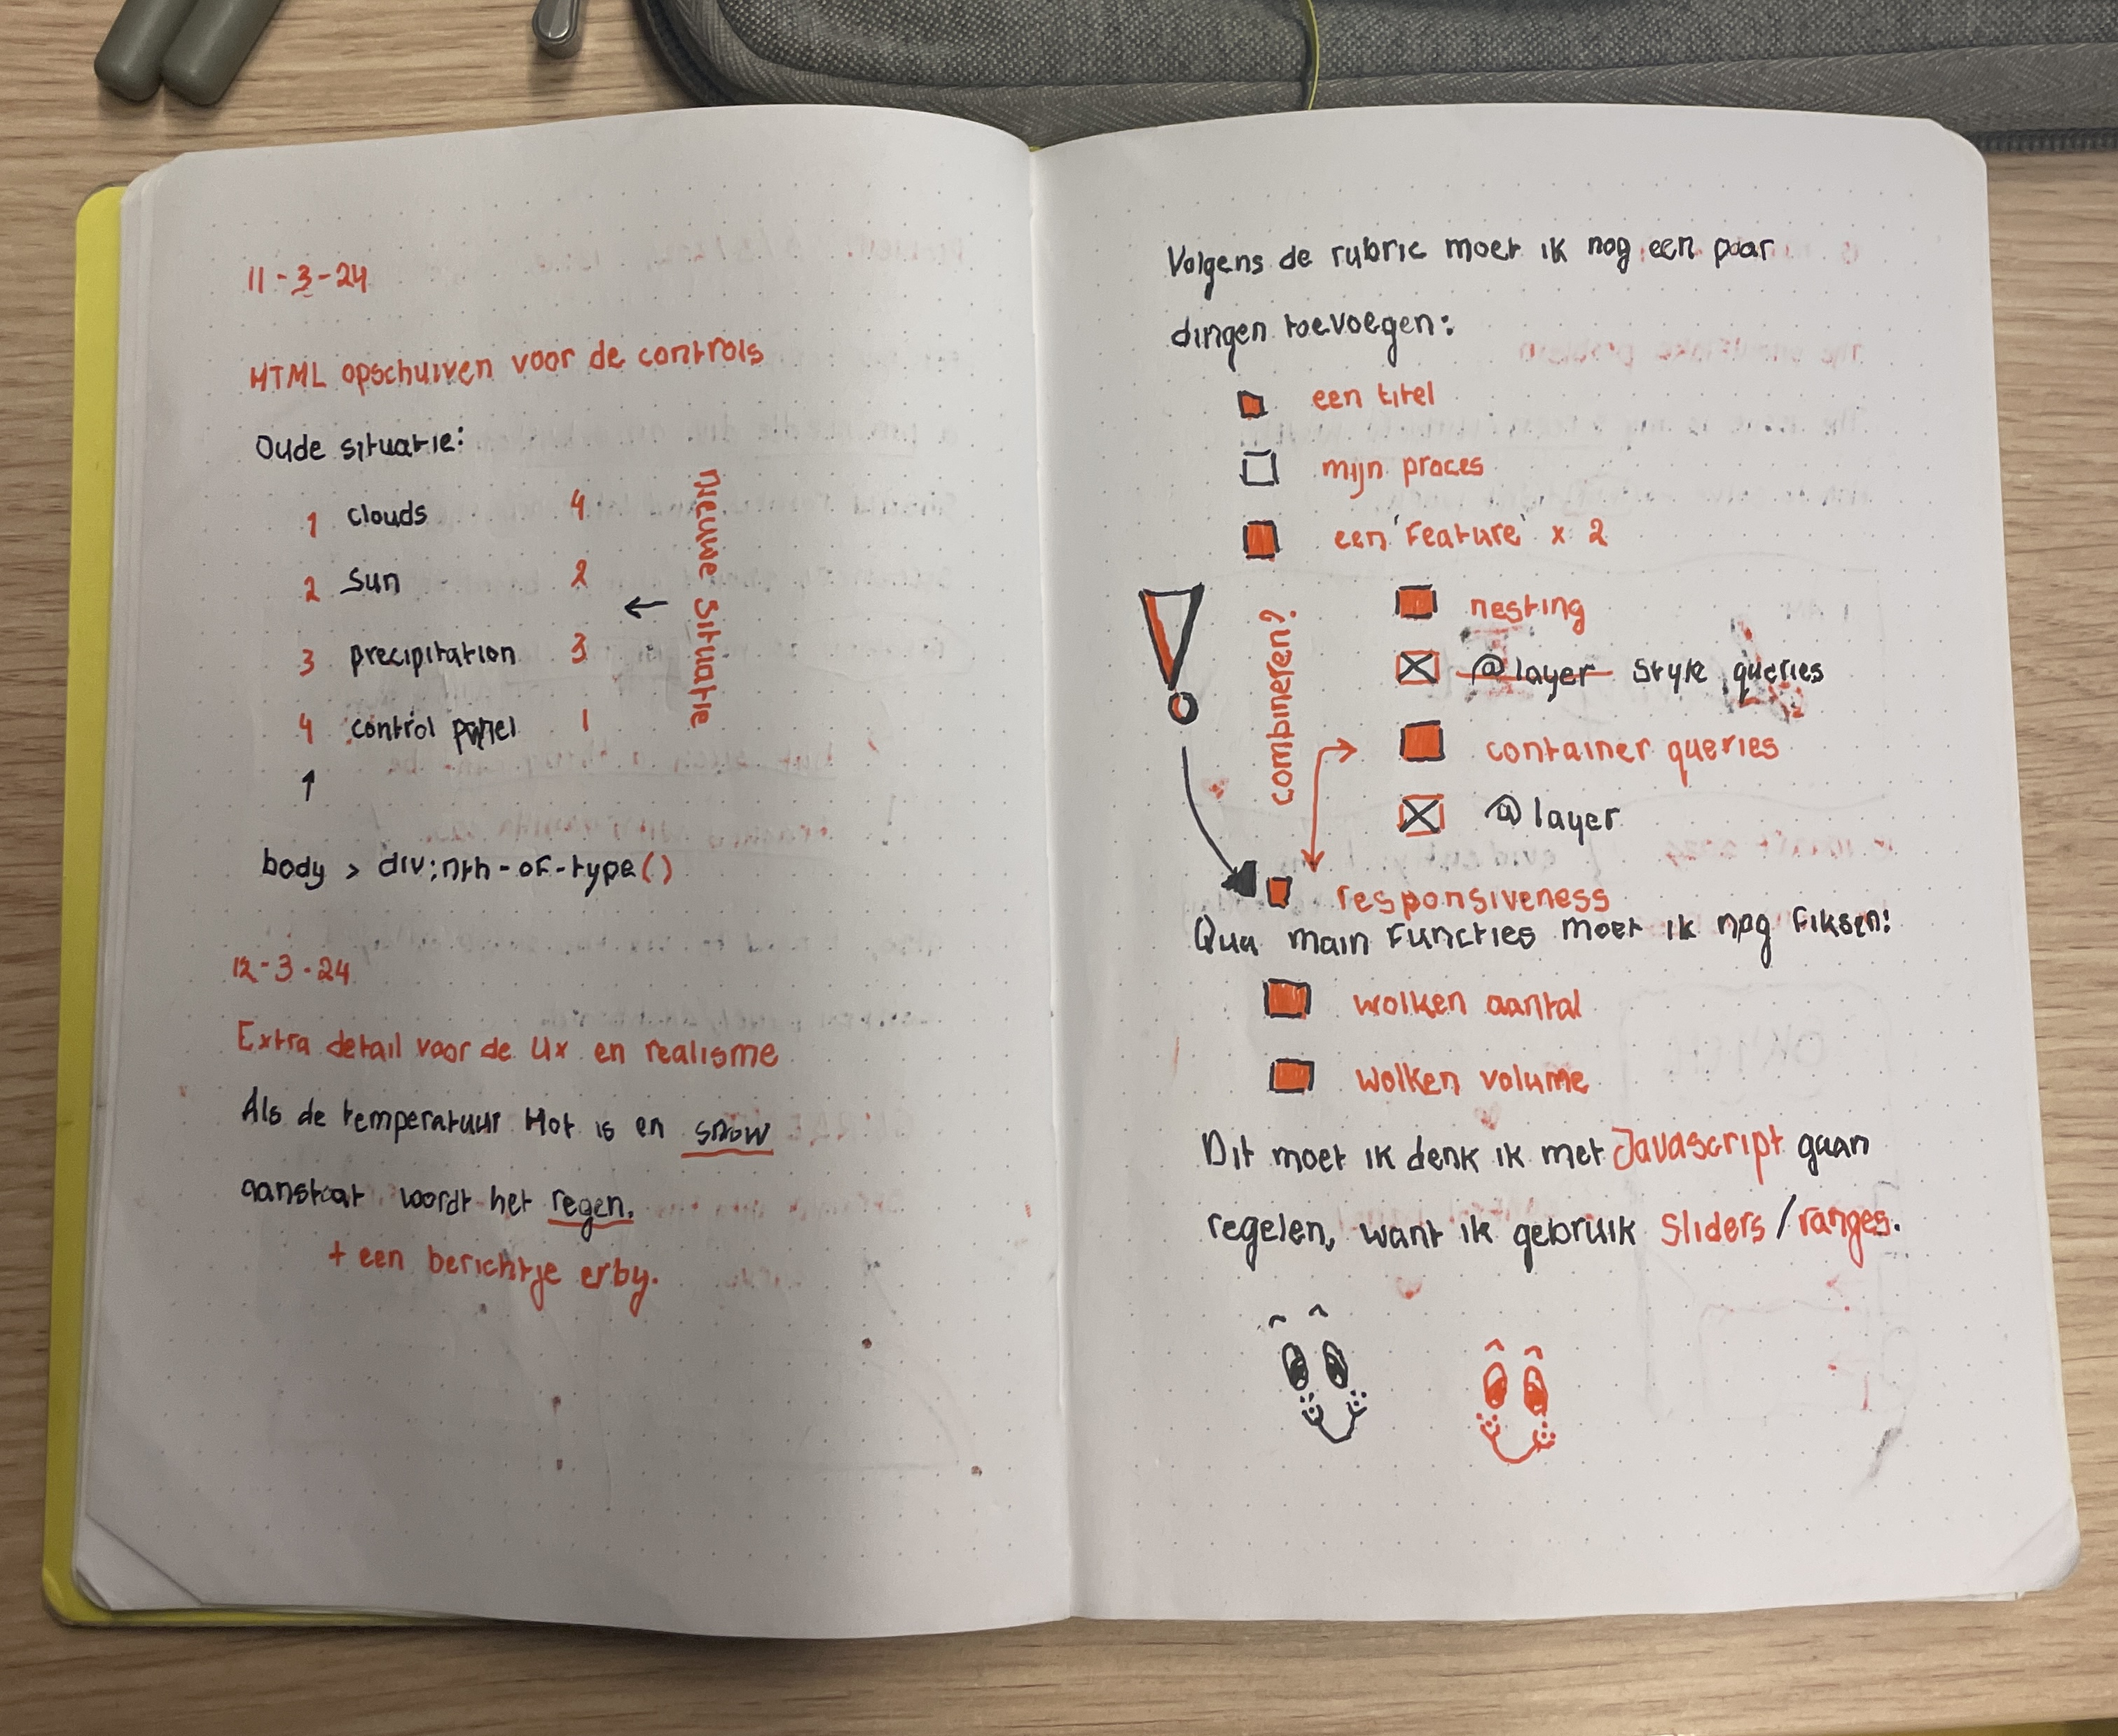 11-3-24
HTML opschuiven voor de controls
Oude situatie:
1 clouds 4
2 Sun 2
3 precipitation 3
4 control panel 1
Nieuwe Situatie
body > div:nth-of-type()
12-3-24
Extra detail voor de UX en realisme
Als de temperatuur Hot is en snow
aanstaat wordt het regen.
+ een berichtje erby.
Volgens de rubric moet ik nog een paar
dingen toevoegen:
een titel
mijn proces
een 'Feature' x 2
nesting
@layer style queries
container queries
@layer
combineren?
responsiveness
Qua main Functies moet ik nog fiksen:
wolken aantal
wolken volume
Dit moet ik denk ik met Javascript gaan
regelen, want ik gebruik Sliders / ranges.